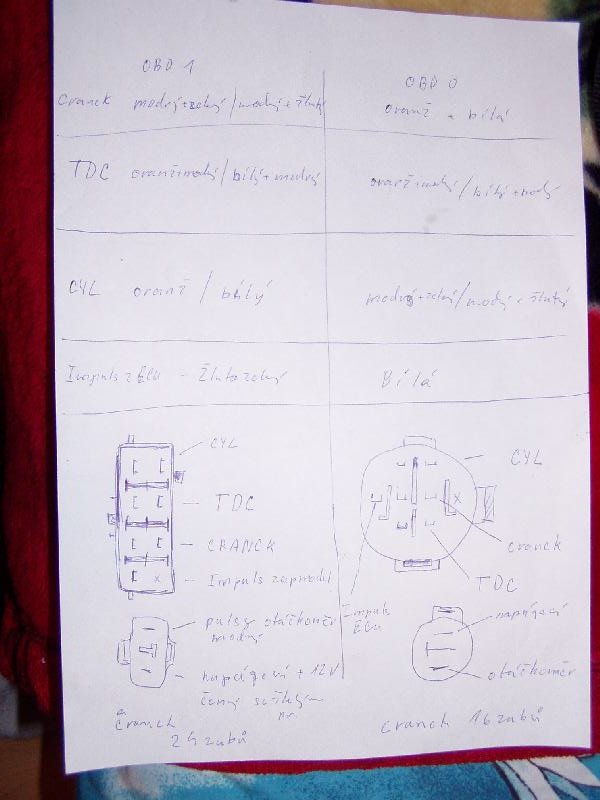 OBD 1
OBD 0
Cranck modrý+zelný/modrý+žlutý
oranž + bílá
TDC oranžimodrý/bílý+modrý
oranžimodrý/bílý+modrý
CYL oranž / bílý
modrý+zelný/modrý+žlutý
Impuls z ECU - Žlutozelný
Bílá
CYL
TDC
CRANCK
Impuls
x
pulsy otáčkoměr
modrý
napájecí +12V
černý
cranck
24 zubů
CYL
x
cranck
TDC
Impuls
ECU
napájecí
otáčkoměr
cranck 16 zubů